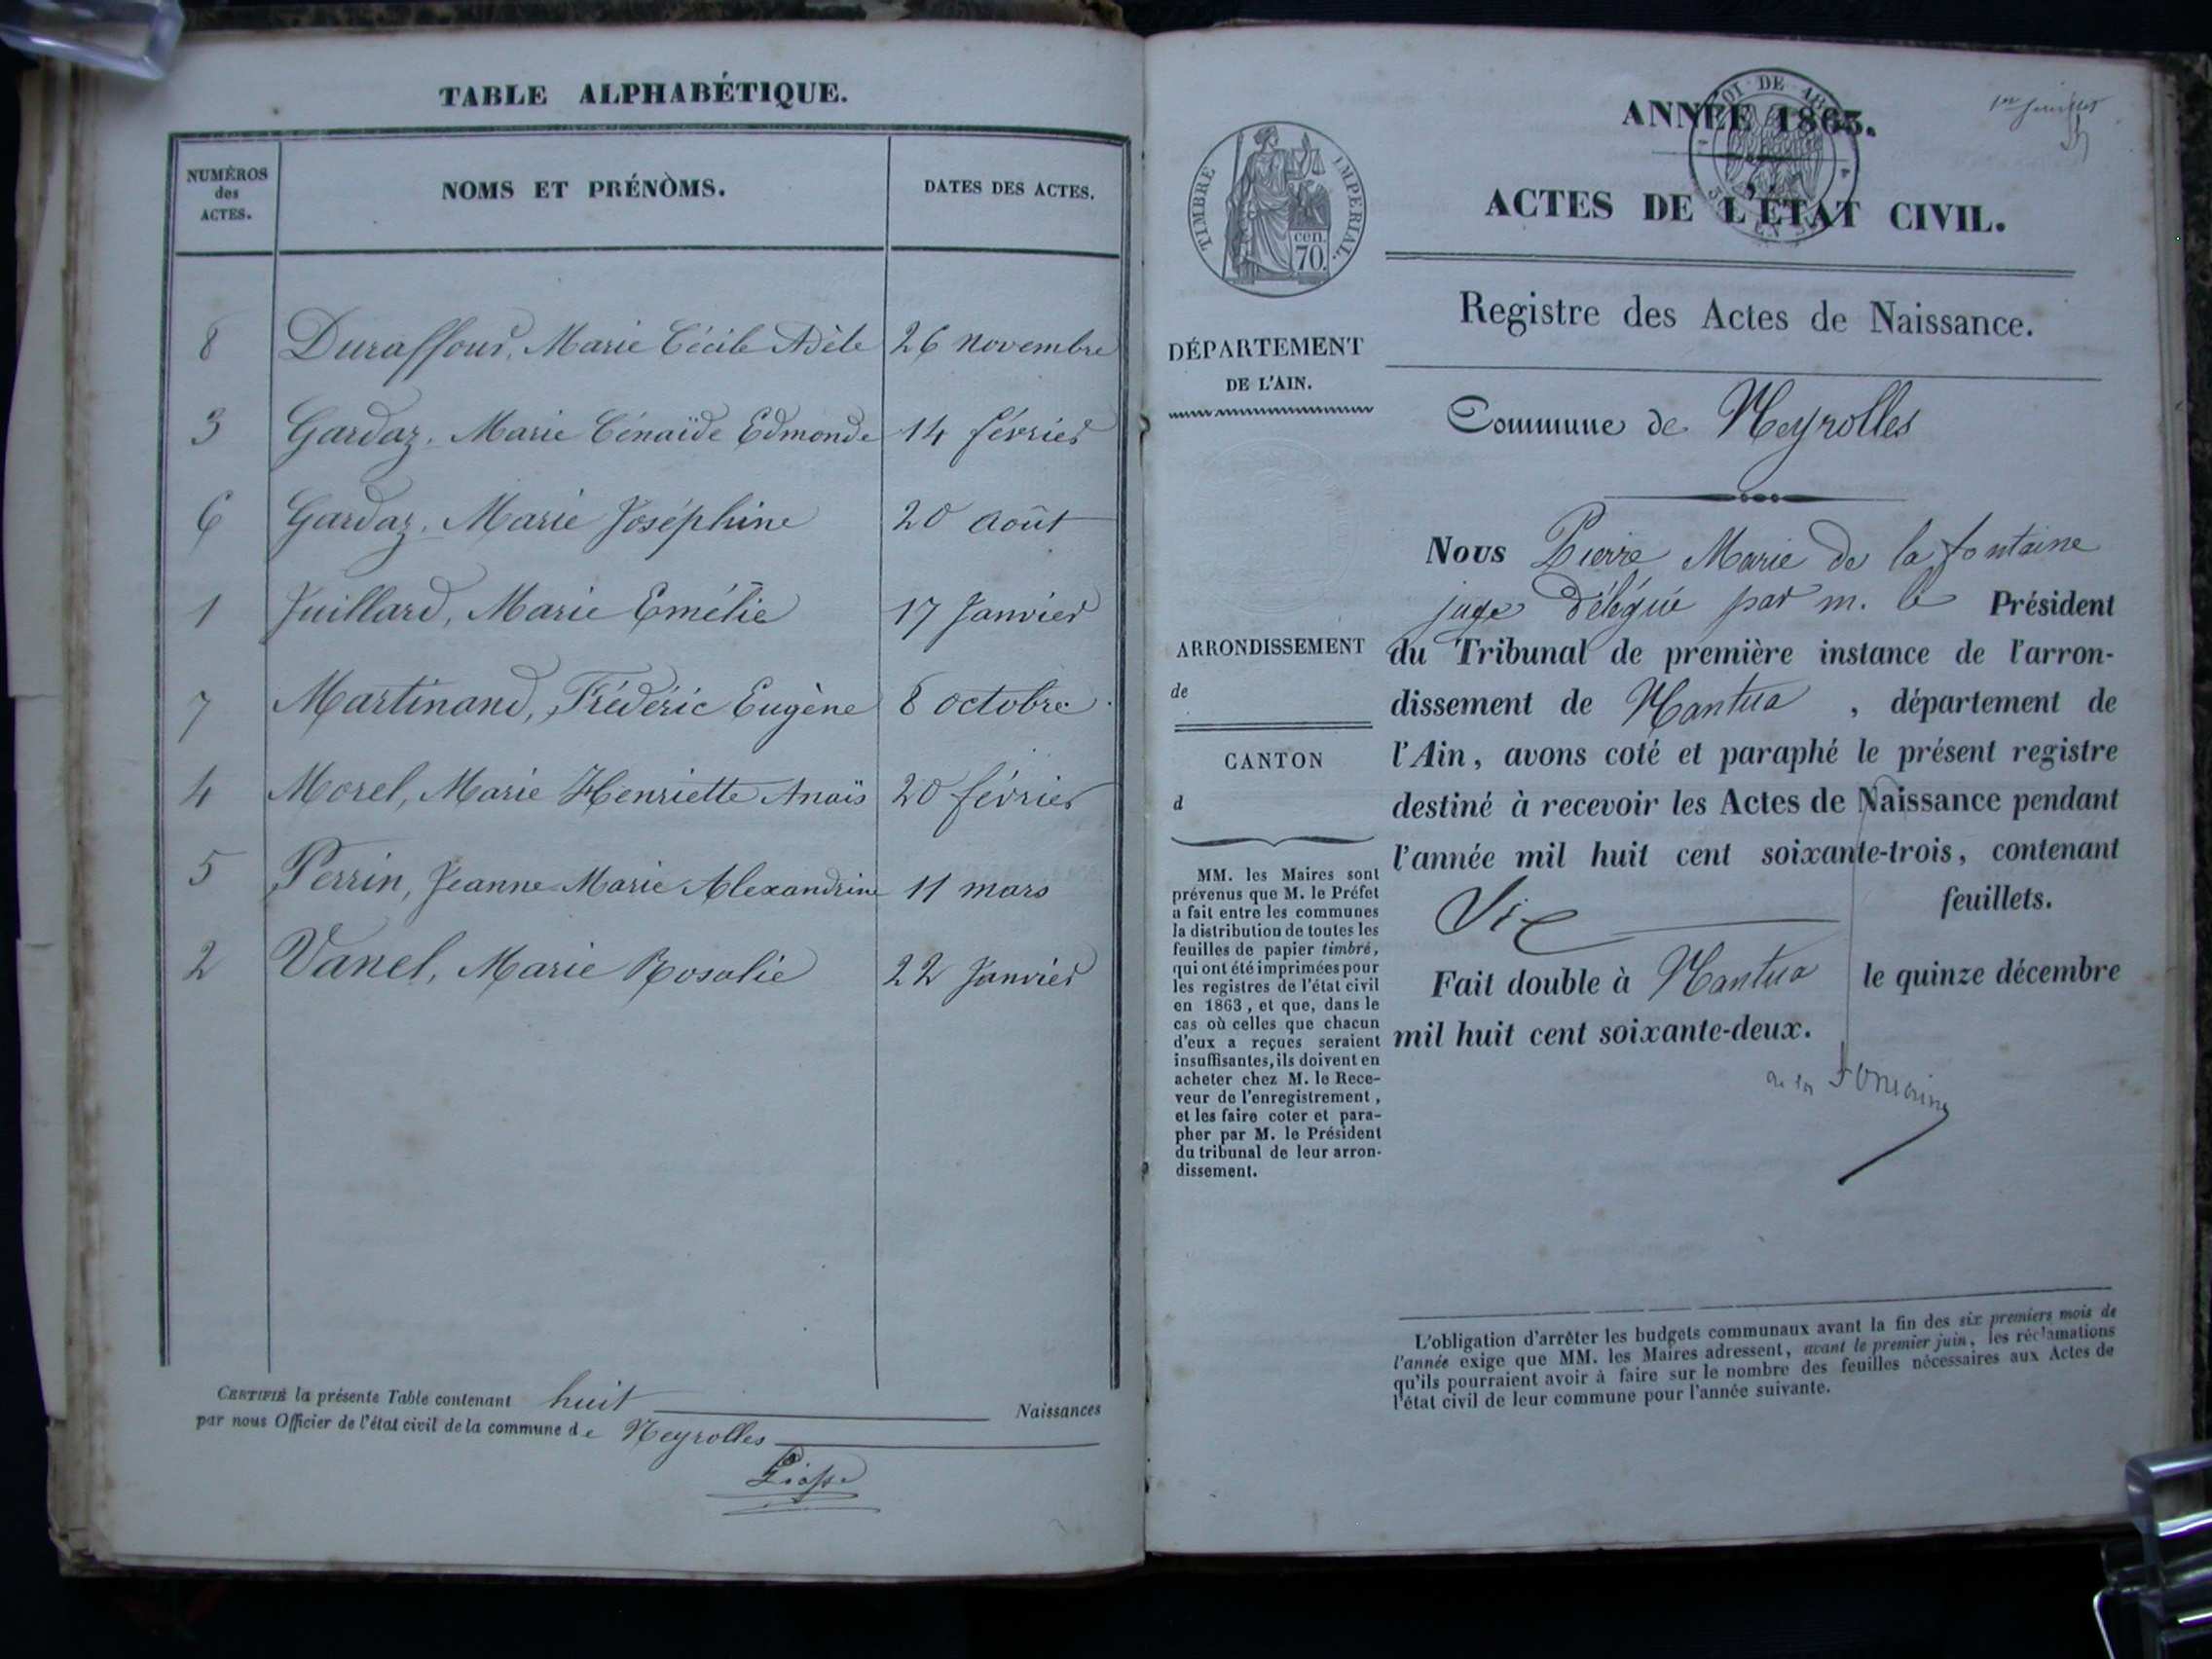 TABLE ALPHABÉTIQUE.
NUMÉROS des ACTES.
NOMS ET PRÉNOMS.
DATES DES ACTES.
8 Duraffour, Marie Cécile Adèle 26 novembre
3 Gardaz, Marie Cénaïde Edmonde 14 février
6 Gardaz, Marie Joséphine 20 août
1 Juillard, Marie Emélie 17 Janvier
7 Martinand, Frédéric Eugène 8 octobre
4 Morel, Marie Henriette Anaïs 20 février
5 Perrin, Jeanne Marie Alexandrine 11 mars
2 Vanel, Marie Rosalie 22 Janvier
CERTIFIÉ la présente Table contenant huit Naissances
par nous Officier de l'état civil de la commune de Neyrolles
1er feuillet
ANNÉE 1863.
ACTES DE L'ÉTAT CIVIL.
TIMBRE IMPÉRIAL.
cen.
70.
Registre des Actes de Naissance.
DÉPARTEMENT
DE L'AIN.
Commune de Neyrolles
Nous Pierre Marie de la fontaine
juge délégué par m. le Président
du Tribunal de première instance de l'arron-
dissement de Nantua, département de
l'Ain, avons coté et paraphé le présent registre
destiné à recevoir les Actes de Naissance pendant
l'année mil huit cent soixante-trois, contenant
Six feuillets.
Fait double à Nantua le quinze décembre
mil huit cent soixante-deux.
de la Fontaine
ARRONDISSEMENT
de
CANTON
d
MM. les Maires sont
prévenus que M. le Préfet
a fait entre les communes
la distribution de toutes les
feuilles de papier timbré,
qui ont été imprimées pour
les registres de l'état civil
en 1863, et que, dans le
cas où celles que chacun
d'eux a reçues seraient
insuffisantes, ils doivent en
acheter chez M. le Rece-
veur de l'enregistrement,
et les faire coter et para-
pher par M. le Président
du tribunal de leur arron-
dissement.
L'obligation d'arrêter les budgets communaux avant la fin des six premiers mois de
l'année exige que MM. les Maires adressent, avant le premier juin, les réclamations
qu'ils pourraient avoir à faire sur le nombre des feuilles nécessaires aux Actes de
l'état civil de leur commune pour l'année suivante.